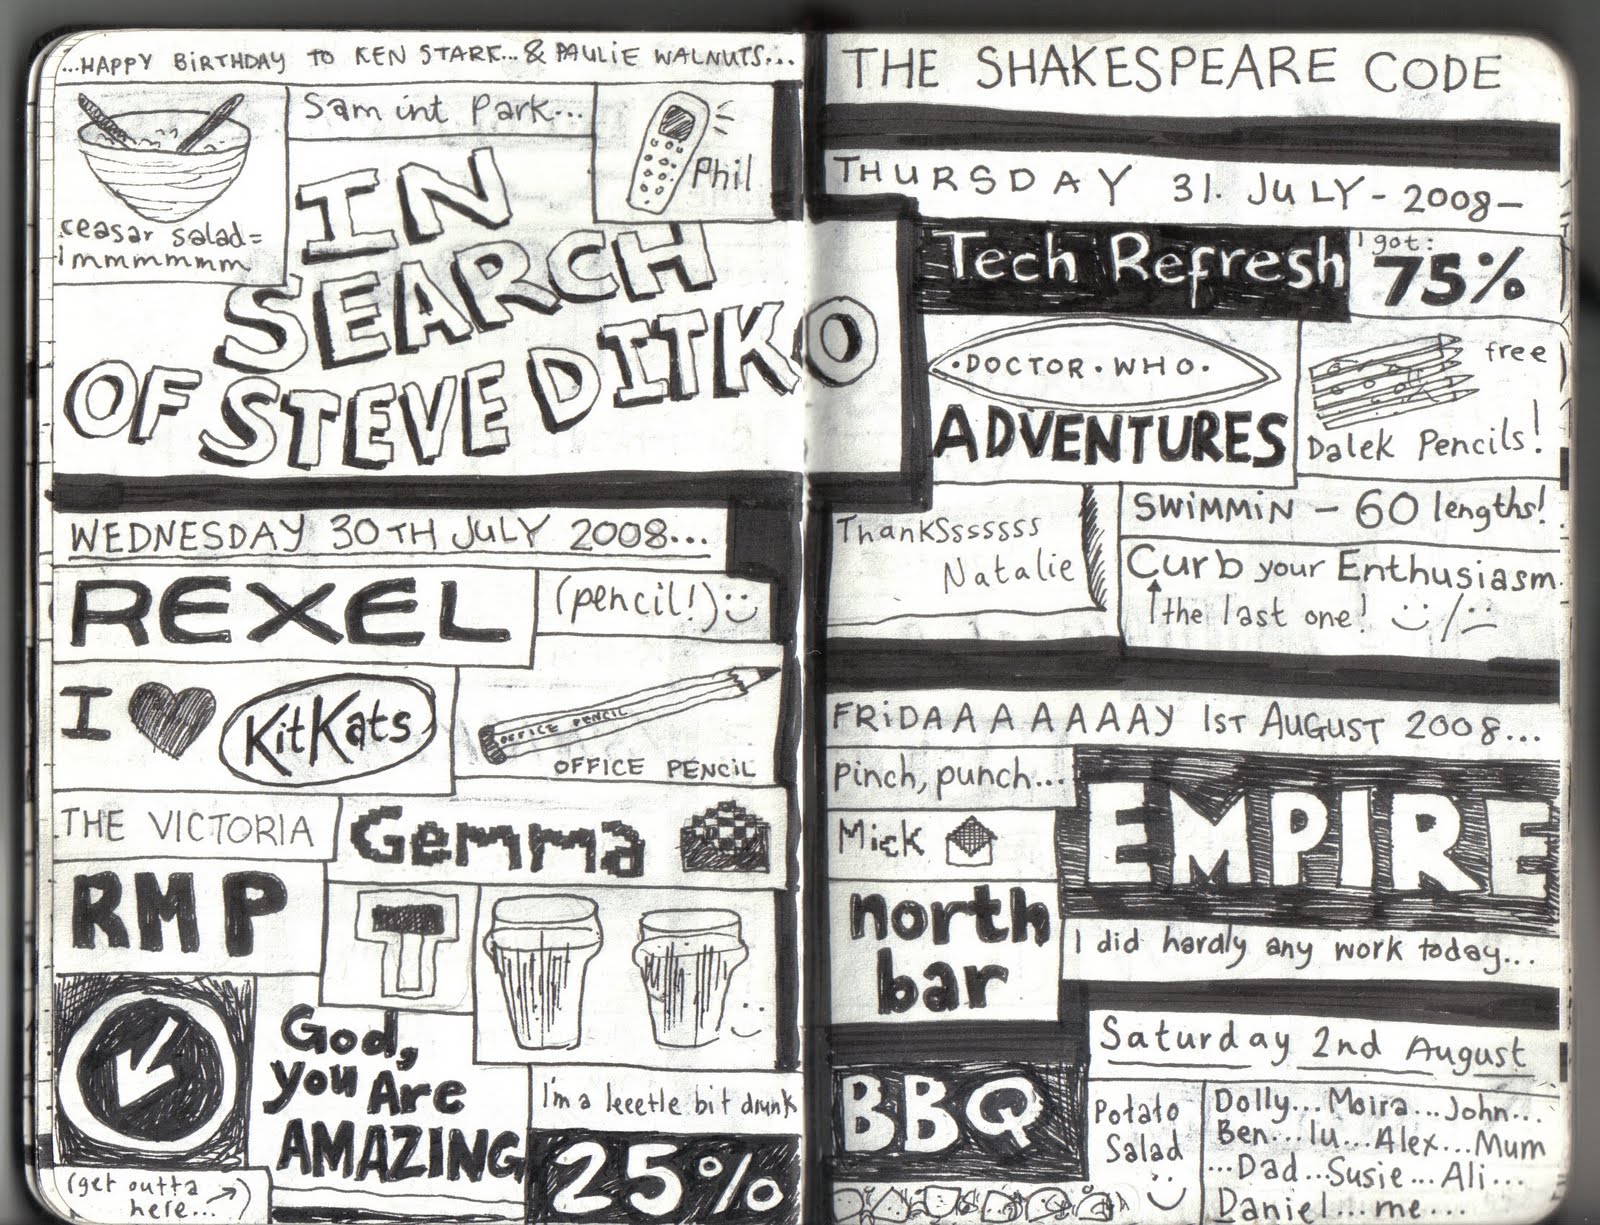 ...HAPPY BIRTHDAY TO KEN STARK...& PAULIE WALNUTS...
Sam int Park...
Phil
ceasar salad =
immmmmmm
IN
SEARCH
OF STEVE DITKO
WEDNESDAY 30TH JULY 2008...
REXEL
(pencil!)
I
KitKats
OFFICE PENCIL
OFFICE PENCIL
THE VICTORIA
Gemma
RMP
T
God,
you Are
AMAZING
I'm a leeetle bit drunk
25%
(get outta
here... )
THE SHAKESPEARE CODE
THURSDAY 31. JULY - 2008 -
Tech Refresh
I got:
75%
. DOCTOR . WHO .
ADVENTURES
free
Dalek Pencils!
ThankSsssssss
Natalie
SWIMMIN - 60 lengths!
Curb your Enthusiasm.
the last one! /
FRIDAAAAAAAAY 1ST AUGUST 2008...
Pinch, punch...
EMPIRE
Mick
north
bar
I did hardly any work today...
Saturday 2nd August
BBQ
Potato
Salad
Dolly...Moira...John...
Ben...lu...Alex...Mum
...Dad...Susie...Ali...
Daniel...me...